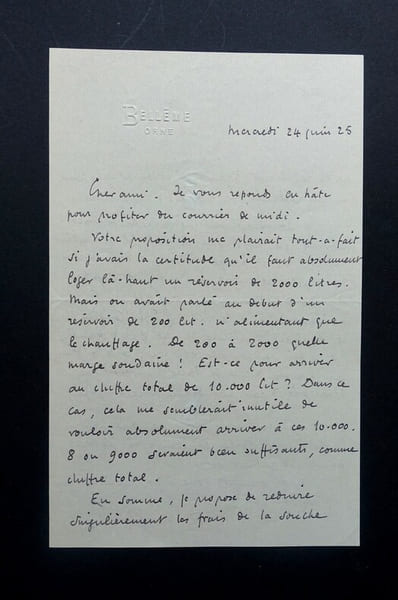 BELLÊME
ORNE
Mercredi 24 juin 25
Cher ami. Je vous reponds en hâte
pour profiter du courrier de midi.
Votre proposition me plairait tout-a-fait
si j'avais la certitude qu'il faut absolument
loger là-haut un réservoir de 2000 litres.
Mais on avait parlé au début d'un
réservoir de 200 lit. n'alimentant que
le chauffage. De 200 à 2000 quelle
marge soudaine ! Est-ce pour arriver
au chiffre total de 10.000 lit ? Dans ce
cas, cela me semblerait inutile de
vouloir absolument arriver à ces 10.000.
8 ou 9000 seraient bien suffisants, comme
chiffre total.
En somme, je propose de reduire
singulièrement les frais de la souche